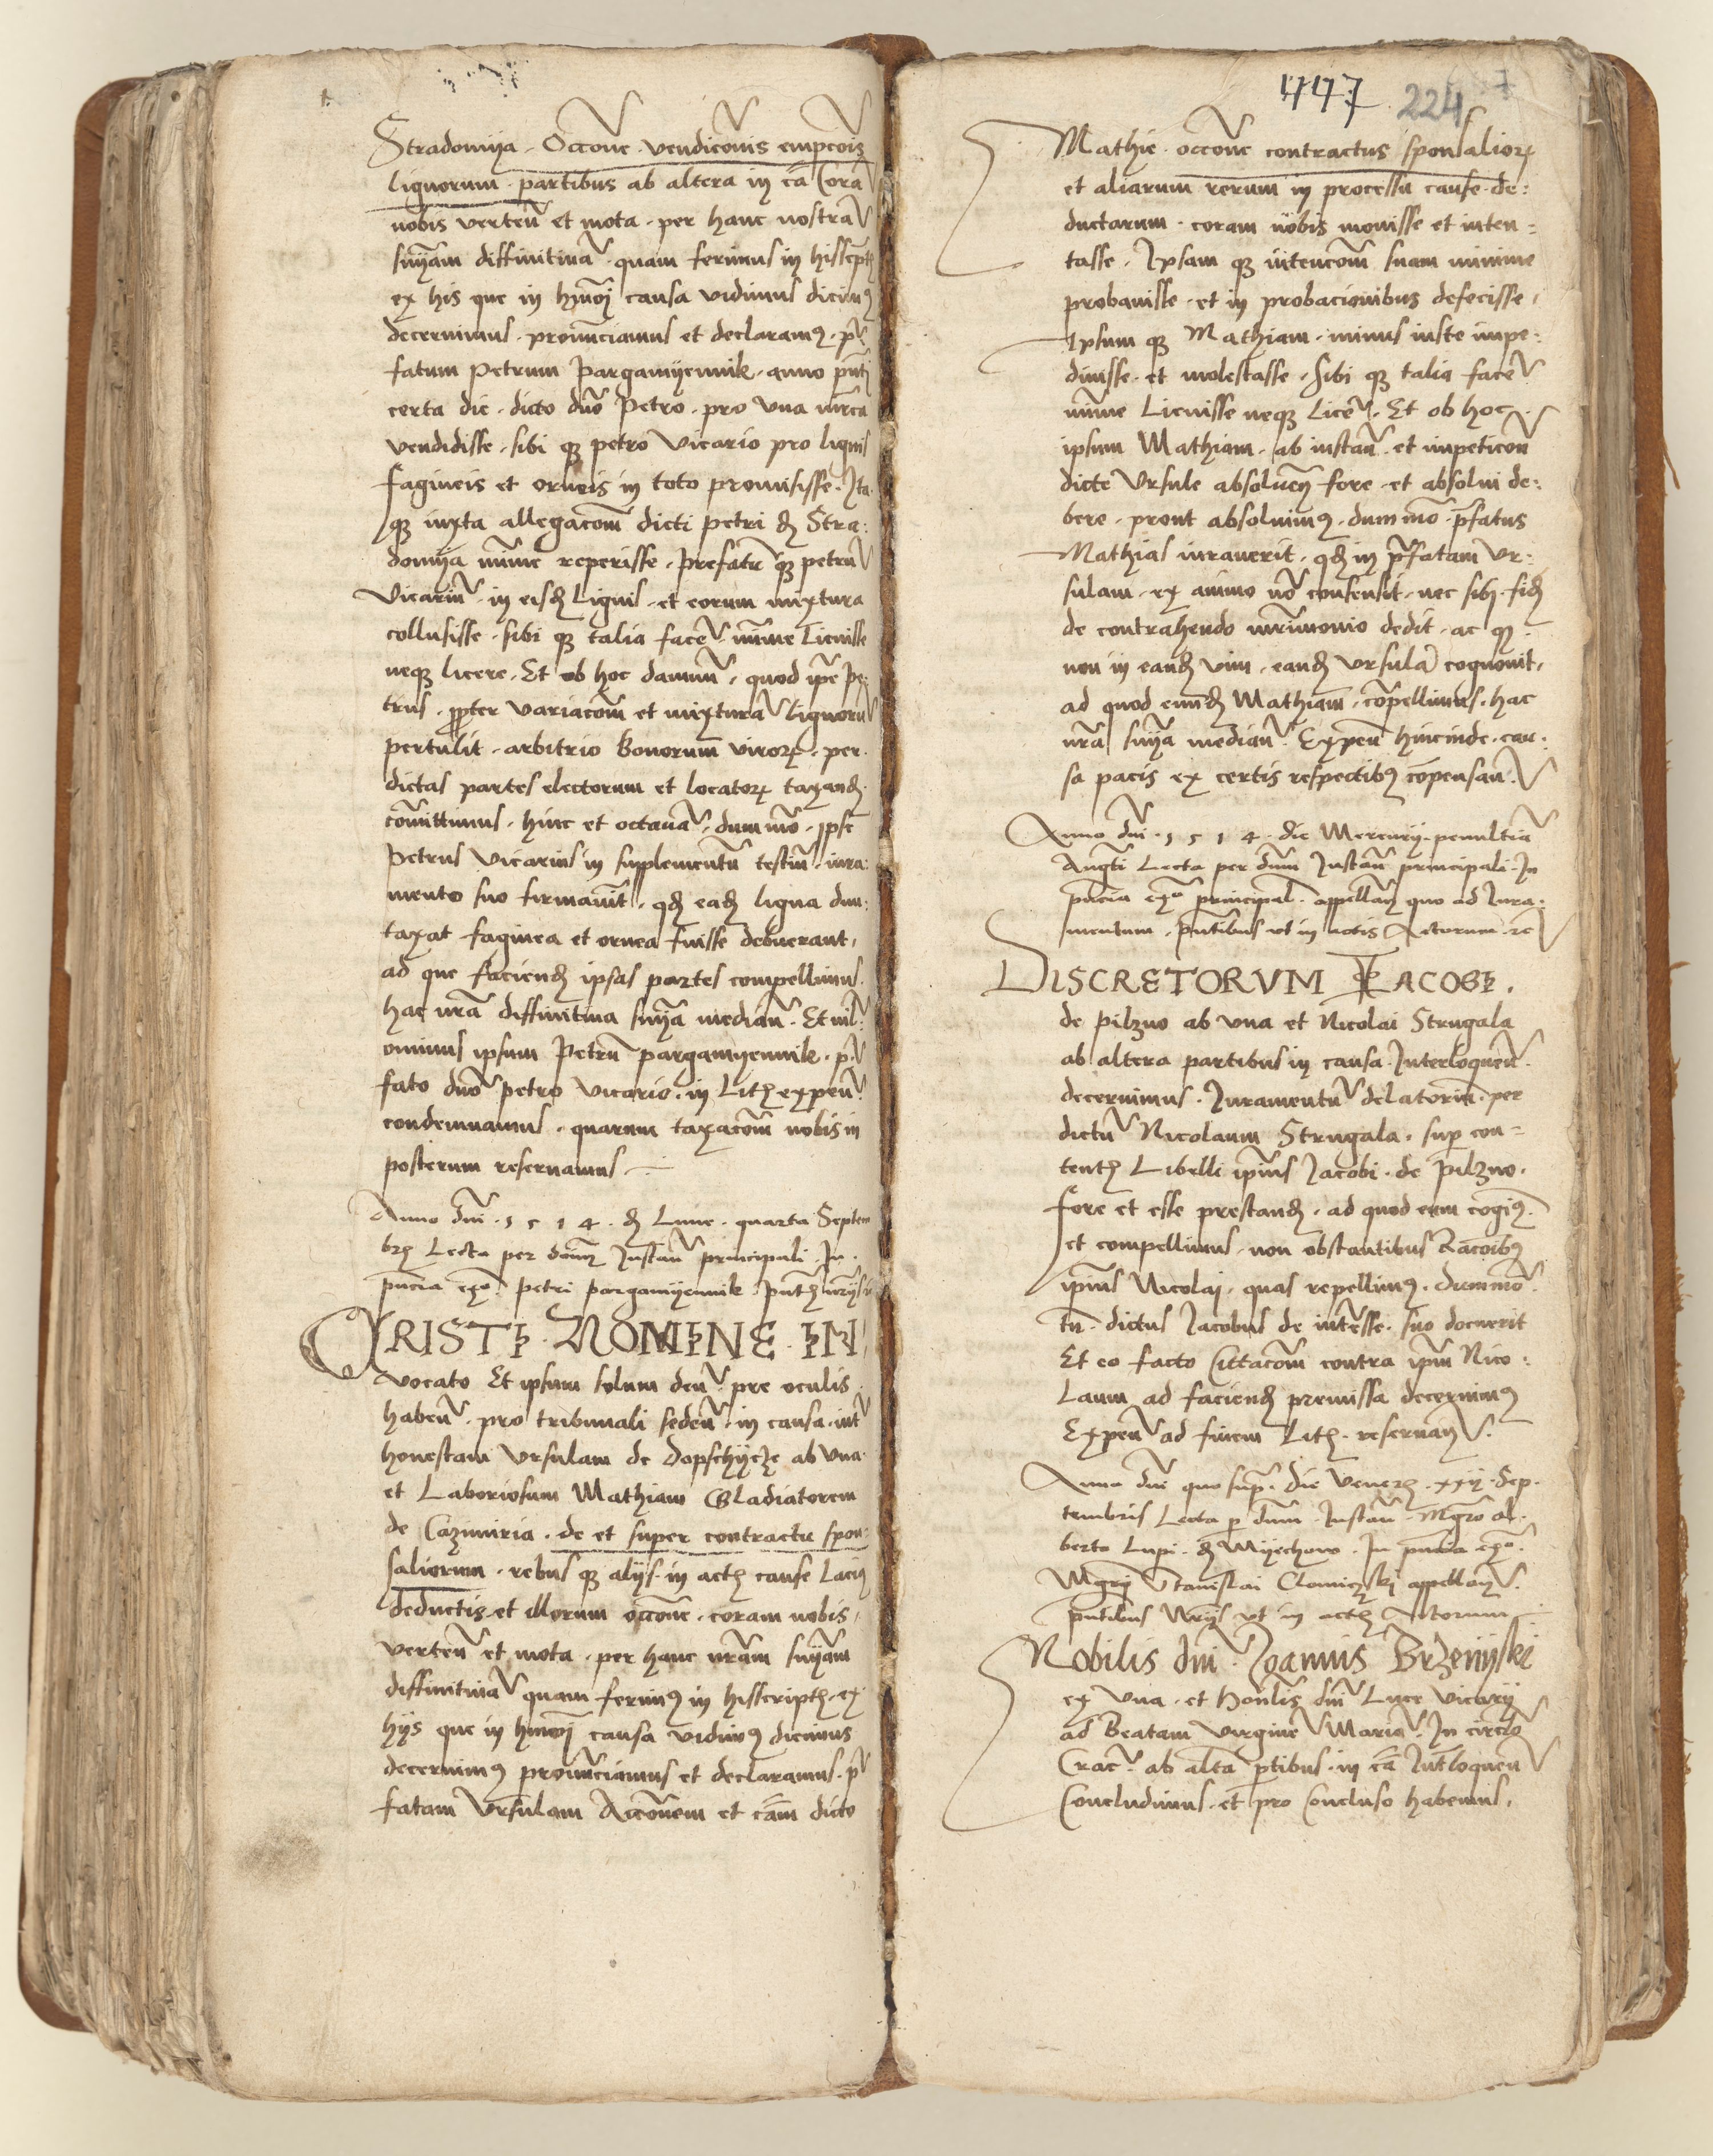 Stradomija · Occone · vendicõnis empcõis
lignorum · partibus ab altera in cã Corã
nobis verteñ et mota · per hanc nostrã
snÿam diffinitivã · quam ferimus in hisscript
ex his que in hmõi causa vidimus dicimus
decernimus · pronũciamus et declaramus · p̃
fatum Petrum Pargamijennik · anno pñti
certa die · dicto dño Petro · pro una mrca
vendidisse · sibi qꝫ petro vicario pro lignis
fagineis et orneis in toto promisisse · Ita
qꝫ iuxta allegacõm dicti petri de Stra:
domija mĩme reperisse · prefatũ qꝫ petrũ
vicariũ · in eisdẽ Lignis · et eorum mixtura
collusisse · sibi qꝫ talia facẽ · mĩme licuisse
neqꝫ licere · Et ob hoc damnũ · quod ip̃e pe
trus · ꝓpter variacõm et mixturã lignorũ
pertulit · arbitrio bonorum virorꝫ · per
dictas partes electorum et locatorꝫ taxandẽ
cõmittimus · hinc et octavã · dummõ · ip̃e
Petrus vicarius in supplementũ testiũ · iura
mento suo firmaverit · qdẽ eadẽ ligna dun:
taxat faginea et ornea fuisse debuerant,
ad que faciendẽ ipsas partes compellimus
hac nrã diffinitiva snÿa mediañ · Et nil
ominus ipsum Petrũ pargamijennik · p̃
fato dño petro vicario · in Litꝫ expeñ
condemnamus · quarum taxacõm nobis in
posterum reservamus ·
Anno dñi · 1 5 1 4 · dẽ Lune · quarta Septem
brꝫ Lecta per dominꝫ Instañ principali · In
pñcia exo Petri pargamijennik pñtꝫ
CRISTI · NOMINE · IN
vocato Et ipsum solum deũ pre oculis
habeñ · pro tribunali sedeñ · in causa · int
honestam Ursulam de Dopschijcze ab una
et Laboriosum Mathiam Gladiatorem
de Cazimiria · de et super contractu spon:
saliorum · rebus qꝫ alijs · in actꝫ cause Laciꝫ
deductis et illorum occõne · coram nobis,
verteñ et mota · per hanc nrãm snÿam
diffinitivã quam ferimꝰ in hisscriptꝫ · ex
hijs que in hmõi causa vidimꝰ dicimus
decernimꝰ pronũciamus et declaramus · p̃
fatam Ursulam Accõnem et cãm dicto
447 224
Mathie · occõne contractus sponsaliorꝫ
et aliarum rerum in processu cause · de:
ductarum · coram nobis movisse et inten:
tasse · Ipsam qꝫ intencõm suam minime
probavisse · et in probacionibus defecisse,
Ipsum qꝫ Mathiam · minus iuste impe:
divisse · et molestasse · sibi qꝫ talia facẽ
mĩme Licuisse neqꝫ Licẽ · Et ob hoc ·
ipsum Mathiam · ab instañ · et impeticõn
dicte Ursule absolveñ fore · et absolvi de:
bere · prout absolvimꝰ · dummõ · p̃fatus
Mathias iuraverit · qdẽ in p̃fatam Ur:
sulam · ex animo nõ consensit · nec sibi · fidẽ
de contrahendo mrimonio dedit · ac qꝫ ·
non in eandẽ vim · eandẽ Ursulã cognovit,
ad quod eundẽ Mathiam · cõpellimus · hac
nrã snÿa mediañ · Expeñ hincinde · cau:
sa pacis ex certis respectibꝰ cõpensañ ·
Anno dñi · 1 5 1 4 · die Mercurij · penultiã
Augti Lecta per dñm Instañ principali · In
pñcia exo principal · appellañ quo ad Iura:
mentum · pñtibus ut in notis Actorum · rc
DISCRETORUM IACOBI ·
de pilzno ab una et Nicolai Strugala
ab altera partibus in causa · Interloqueñ ·
decernimus · Iuramentũ delatoriũ · per
dictũ Nicolaum Strugala · sup con:
tentꝫ Libelli ip̃ius Jacobi · de pilzno ·
fore et esse prestandẽ · ad quod eum cogimꝰ
et compellimus · non obstantibus Racõibꝰ
ip̃ius Nicolai · quas repellimꝰ · dummõ
tñ · dictus Jacobus de int̃esse · suo docuerit
Et eo facto Cittacõm contra ip̃m Nico:
Laum ad faciendẽ premissa decernimꝰ
Expeñ ad finem Litꝫ · reservañ ·
Anno dñi quo sup̃ · die Venerꝫ · xxij · Sep:
tembris Lecta p dñm · Instañ · Mgro al:
berto Lupi · dẽ Mijechow · In pñcia exo ·
Mgri Stanislai Clomiczski appellañ ·
pñtibus Ntrijs ut in actꝫ Actorum
Nobilis dñi · Joannis Brzenijski
ex una · et Honlis dñi Luce vicarij
ad Beatam virginẽ Mariã · In circlo
Crac · ab alta ptibus · in cã Int̃loqueñ
Concludimus · et pro Concluso habemus,